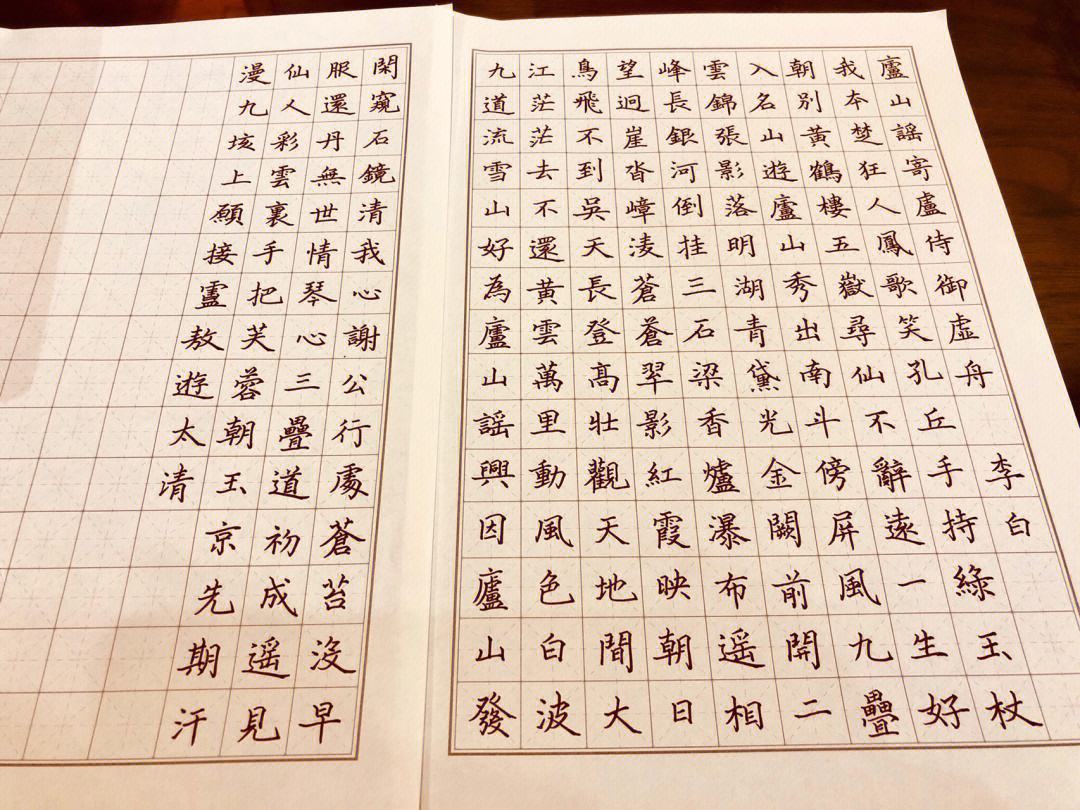 廬山謠寄盧侍御虛舟 李白
我本楚狂人鳳歌笑孔丘手持綠玉杖
朝別黃鶴樓五嶽尋仙不辭遠一生好
入名山遊廬山秀出南斗傍屏風九疊
雲錦張影落明湖青黛光金闕前開二
峰長銀河倒挂三石梁香爐瀑布遥相
望迥崖沓嶂淩蒼蒼翠影紅霞映朝日
鳥飛不到吳天長登高壯觀天地間大
江茫茫去不還黃雲萬里動風色白波
九道流雪山好為廬山謠興因廬山發
閑窺石鏡清我心謝公行處蒼苔沒早
服還丹無世情琴心三疊道初成遥見
仙人彩雲裏手把芙蓉朝玉京先期汗
漫九垓上願接盧敖遊太清